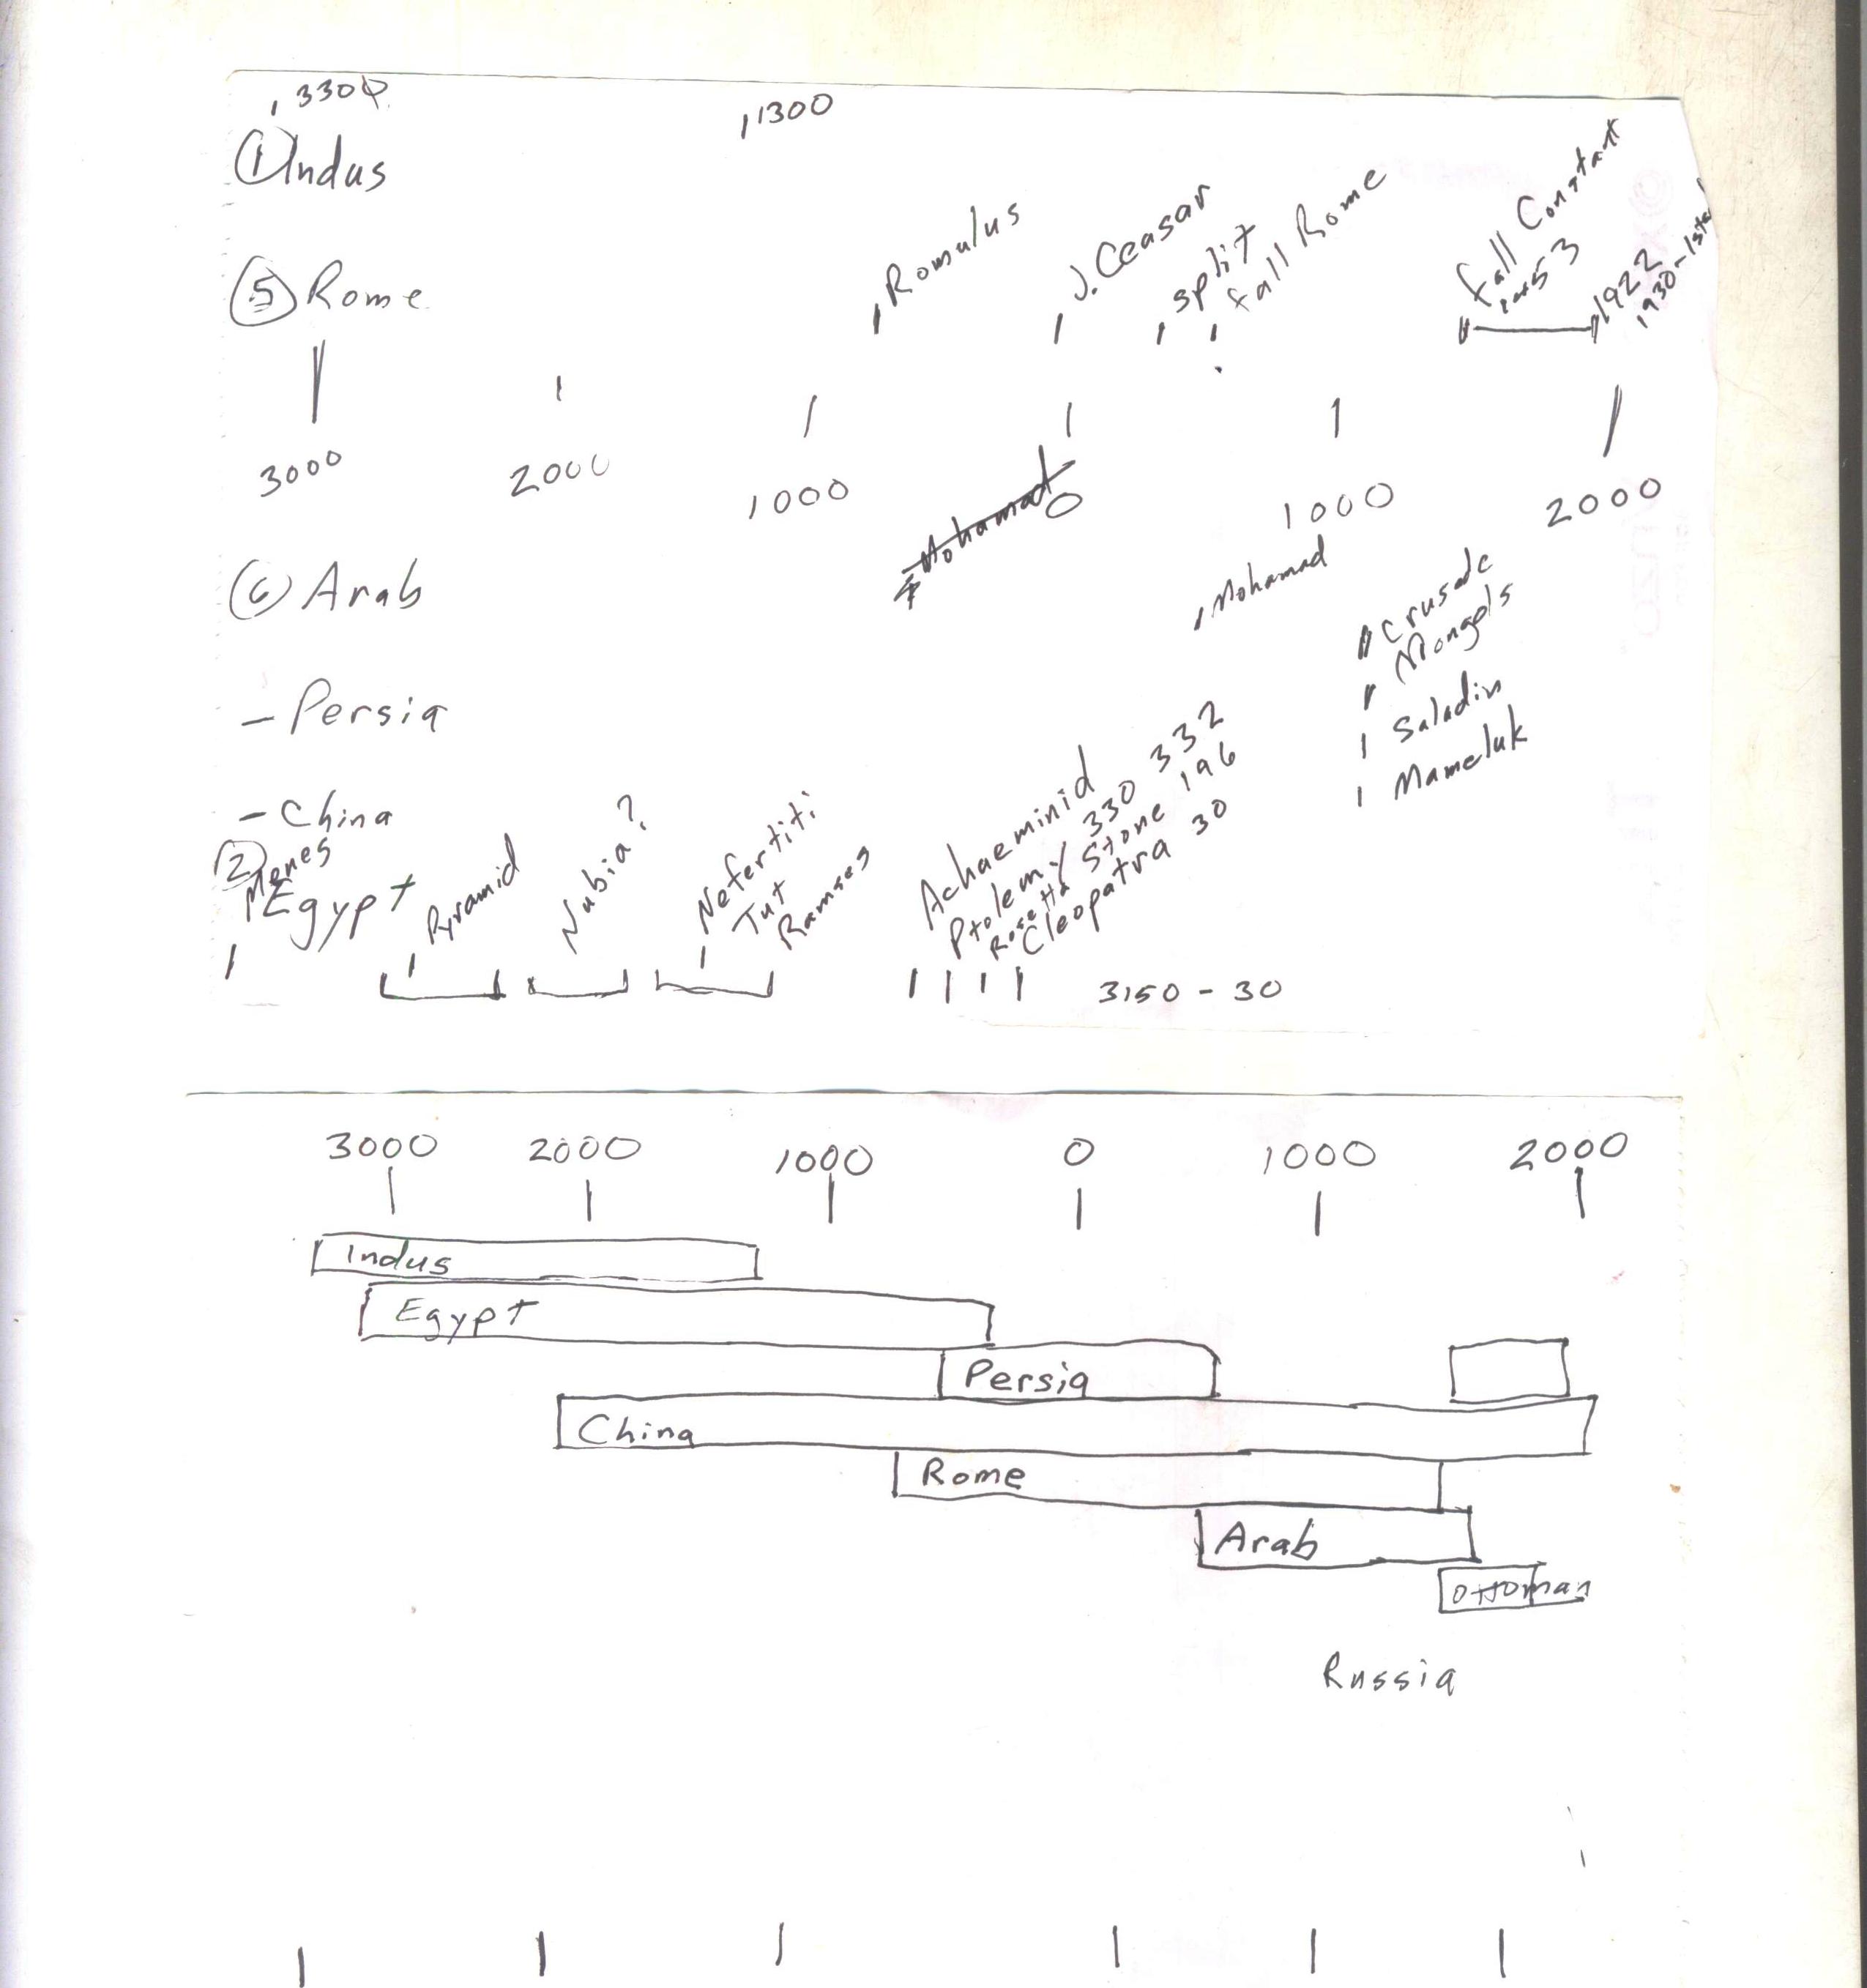 3300
1300
① Indus
Romulus
J. Ceasar
split
fall Rome
fall Constant
1453
1922
1930-Ista
⑤ Rome
3000 2000 1000 0 1000 2000
Mohamad
⑥ Arab
Mohamad
Crusade
Mongols
Saladin
Mameluk
- Persia
- China
② Menes
Egypt
Pyramid
Nubia?
Nefertiti
Tut
Ramses
Achaeminid 332
Ptolemy 330
Rosetta Stone 196
Cleopatra 30
3150 - 30
3000 2000 1000 0 1000 2000
Indus
Egypt
Persia
China
Rome
Arab
Ottoman
Russia